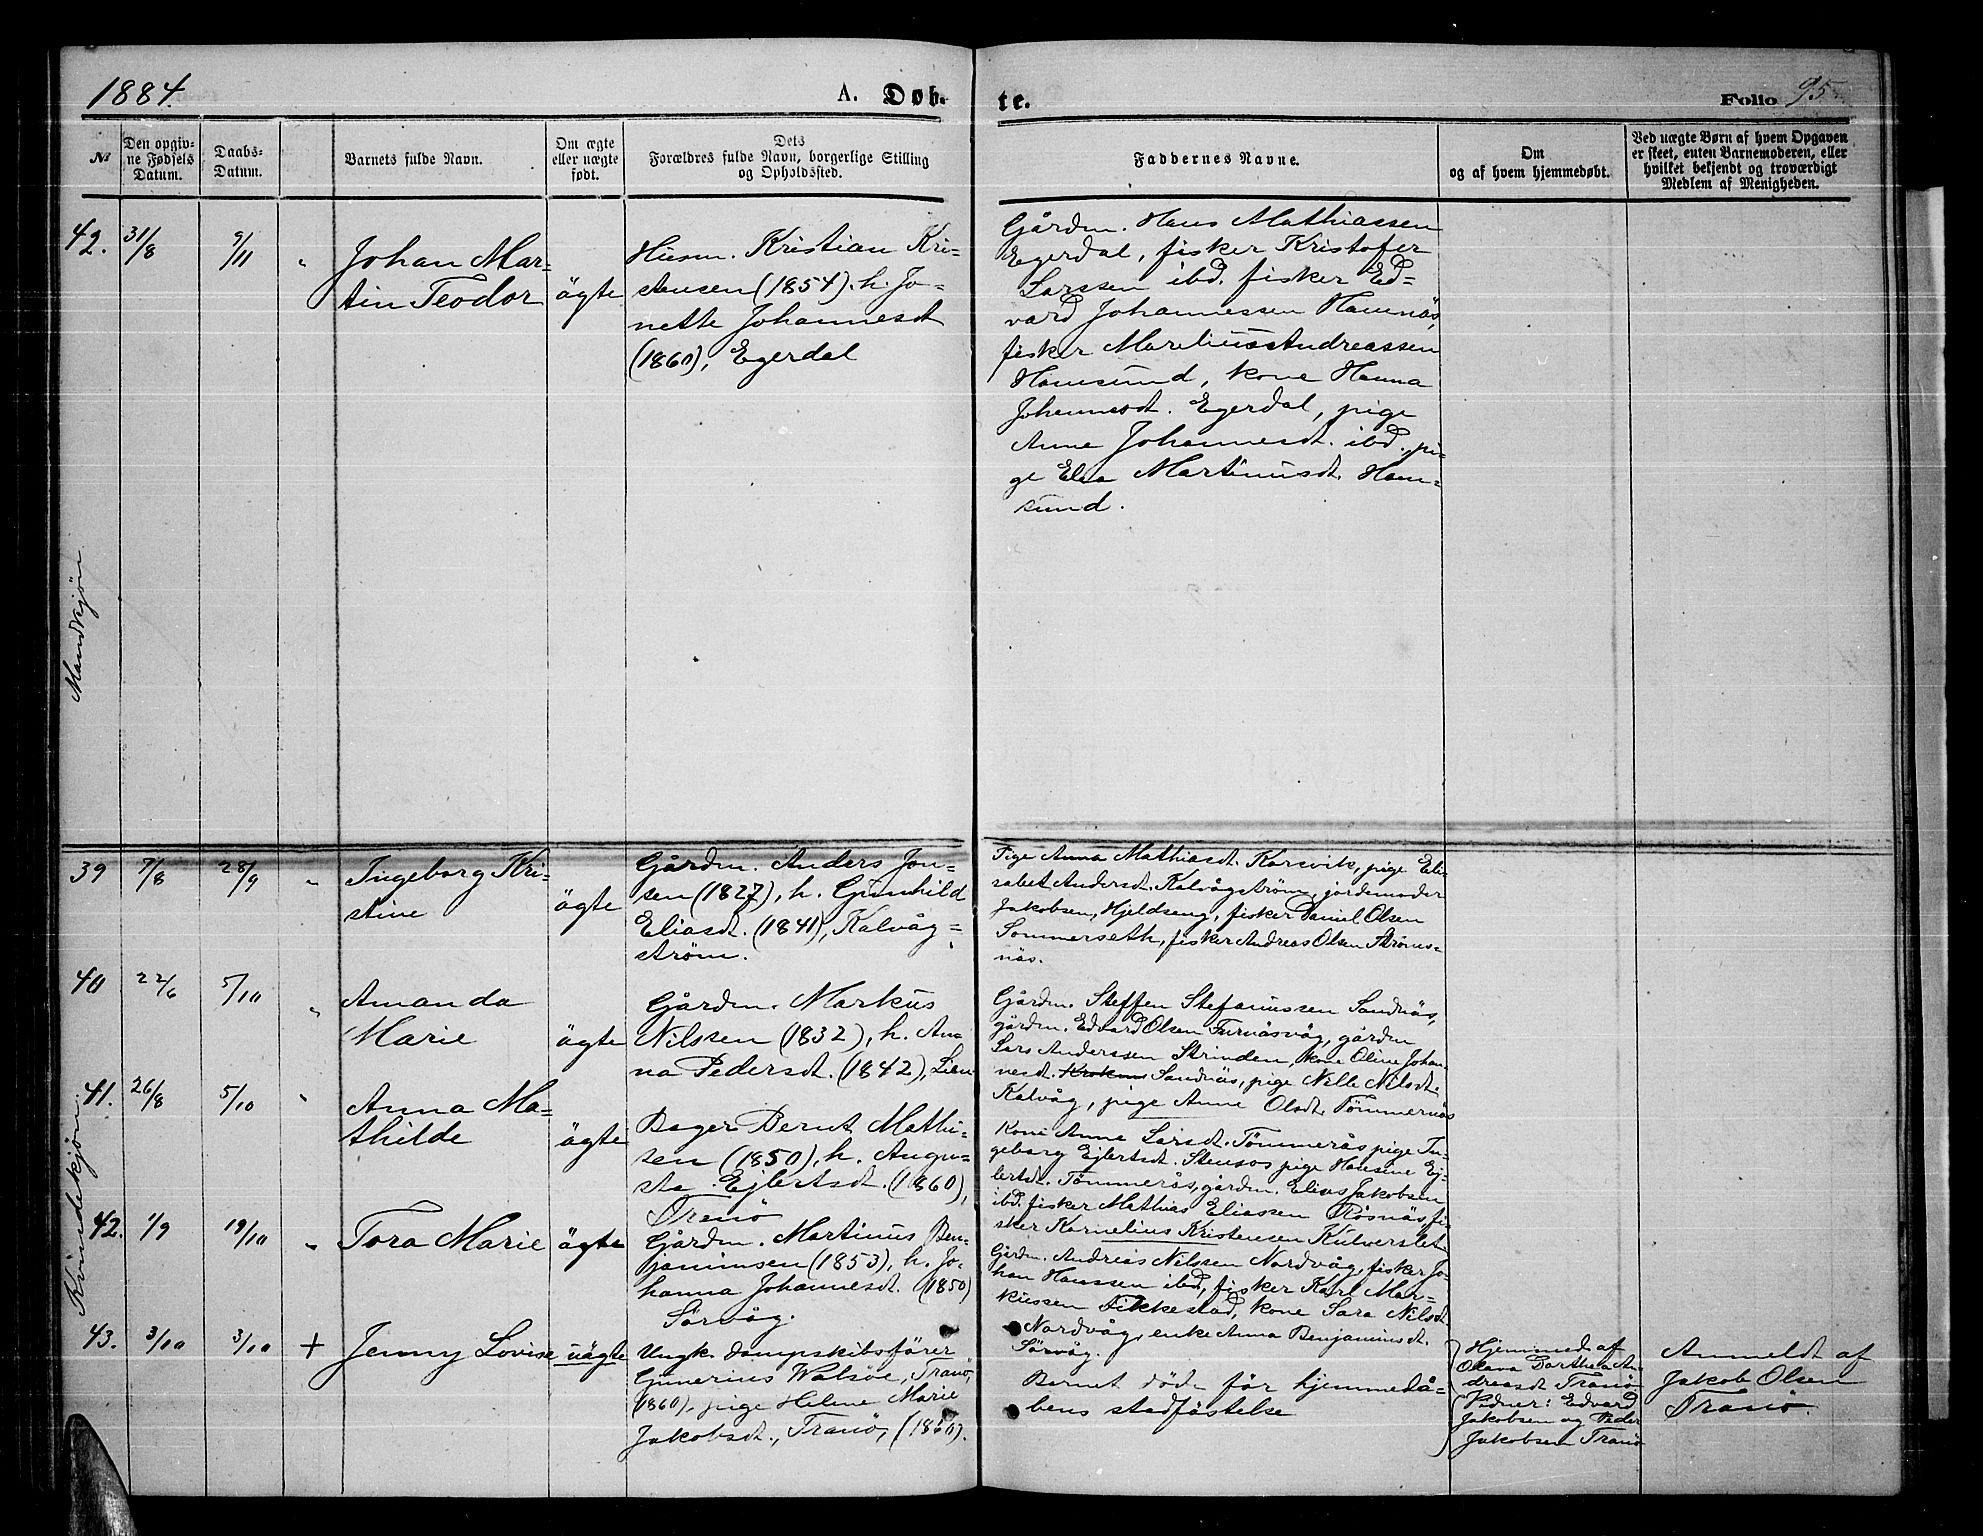 1884.
A. Døb-
te.
Folio 95
№
Den opgiv-
ne Fødsels
Datum.
Daabs-
Datum.
Barnets fulde Navn.
Om ægte
eller uægte
født.
Dets
Forældres fulde Navn, borgerlige Stilling
og Opholdssted.
Faddernes Navne.
Om
og af hvem hjemmedøbt.
Ved uægte Børn af hvem Opgaven
er skeet, enten Barnemoderen, eller
hvilket bekjendt og troværdigt
Medlem af Menigheden.
Mandkjøn
42. 31/8 9/11 "
Johan Mar-
tin Teodor
ägte
Husm. Kristian Kri-
stensen (1854). h. Jo-
nette Johannesdt
(1860), Egerdal
Gårdm. Hans Mathiassen
Egerdal, fisker Kristofer
Larssen ibd. fisker Ed-
vard Johannessen Hamnäs,
fisker Marelius Andreassen
Hamsund, kone Hanna
Johannesdt. Egerdal, pige
Anne Johannesdt. ibd., pi-
ge Elea Martinusdt. Ham-
sund.
Kvindekjøn.
39 7/8 28/9 "
Ingeborg Kri-
stine
ägte
Gårdm. Anders Jon-
sen (1827), h. Gunhild
Eliasdt. (1841), Kalvåg-
strøm.
Pige Anna Mathiasdt. Korsvik, pige Eli-
sabet Andersdt. Kalvågstrøm, jordemoder
Jakobsen, Hjeldseng, fisker Daniel Olsen
Sommerseth, fisker Andreas Olsen Strøms-
näs.
40 22/6 5/10 "
Amanda
Marie
ägte
Gårdm. Markus
Nilssen (1832), h. An-
na Pedersdt. (1842), Lien
Gårdm. Steffen Stefanussen Sandnäs,
gårdm. Edvard Olsen Furnäsvåg, gårdm
Lars Anderssen Strinden, kone Oline Johan-
nesdt. Sandnäs, pige Nelle Nilsdt.
Kalvåg, pige Anne Olsdt. Tømmernäs
41. 26/8 5/10 "
Anna Ma-
thilde
ägte
Bager Bernt Mathi-
sen (1850), h. Augu-
sta Ejlertsdt. (1860),
Tranö
Kone Anne Larsdt. Tömmerås, pige In-
geborg Ejlertsdt. pige Hansine Ej-
lertsdt. Tömmerås, gårdm. Elias Jakobsen
ibd. fisker Mathias Eliassen Røsnäs, fi-
sker Kornelius Kristensen
42. 1/9 19/10 "
Tora Marie
ägte
Gårdm. Martinus Ben-
jaminsen (1853), h. Jo-
hanna Johannesdt. (1850)
Sørvåg.
Gårdm. Andreas Nilssen Nordvåg, fisker Jo-
han Hanssen ibd, fisker Karl Mar-
kussen Fikkestad, kone Sara Nilsdt
Nordvåg, enke Anna Benjaminsdt.
Sörvåg.
43. 3/10 3/10 +
Jenny Lovise
uägte
Ungk. dampskibsfører
Gunerius Walsöe, Tranö,
(1860), pige Helene Marie
Jakobsdt., Tranö, (1860).
Barnet döde för hjemmedå-
bens stadfästelse
Hjemmed. af
Olava Dorthea An-
dreasdt Tranö
Vidner: Edvard
Jakobsen og Peder
Jakobsen Tranö
Anmeldt af
Jakob Olsen
Tranö.